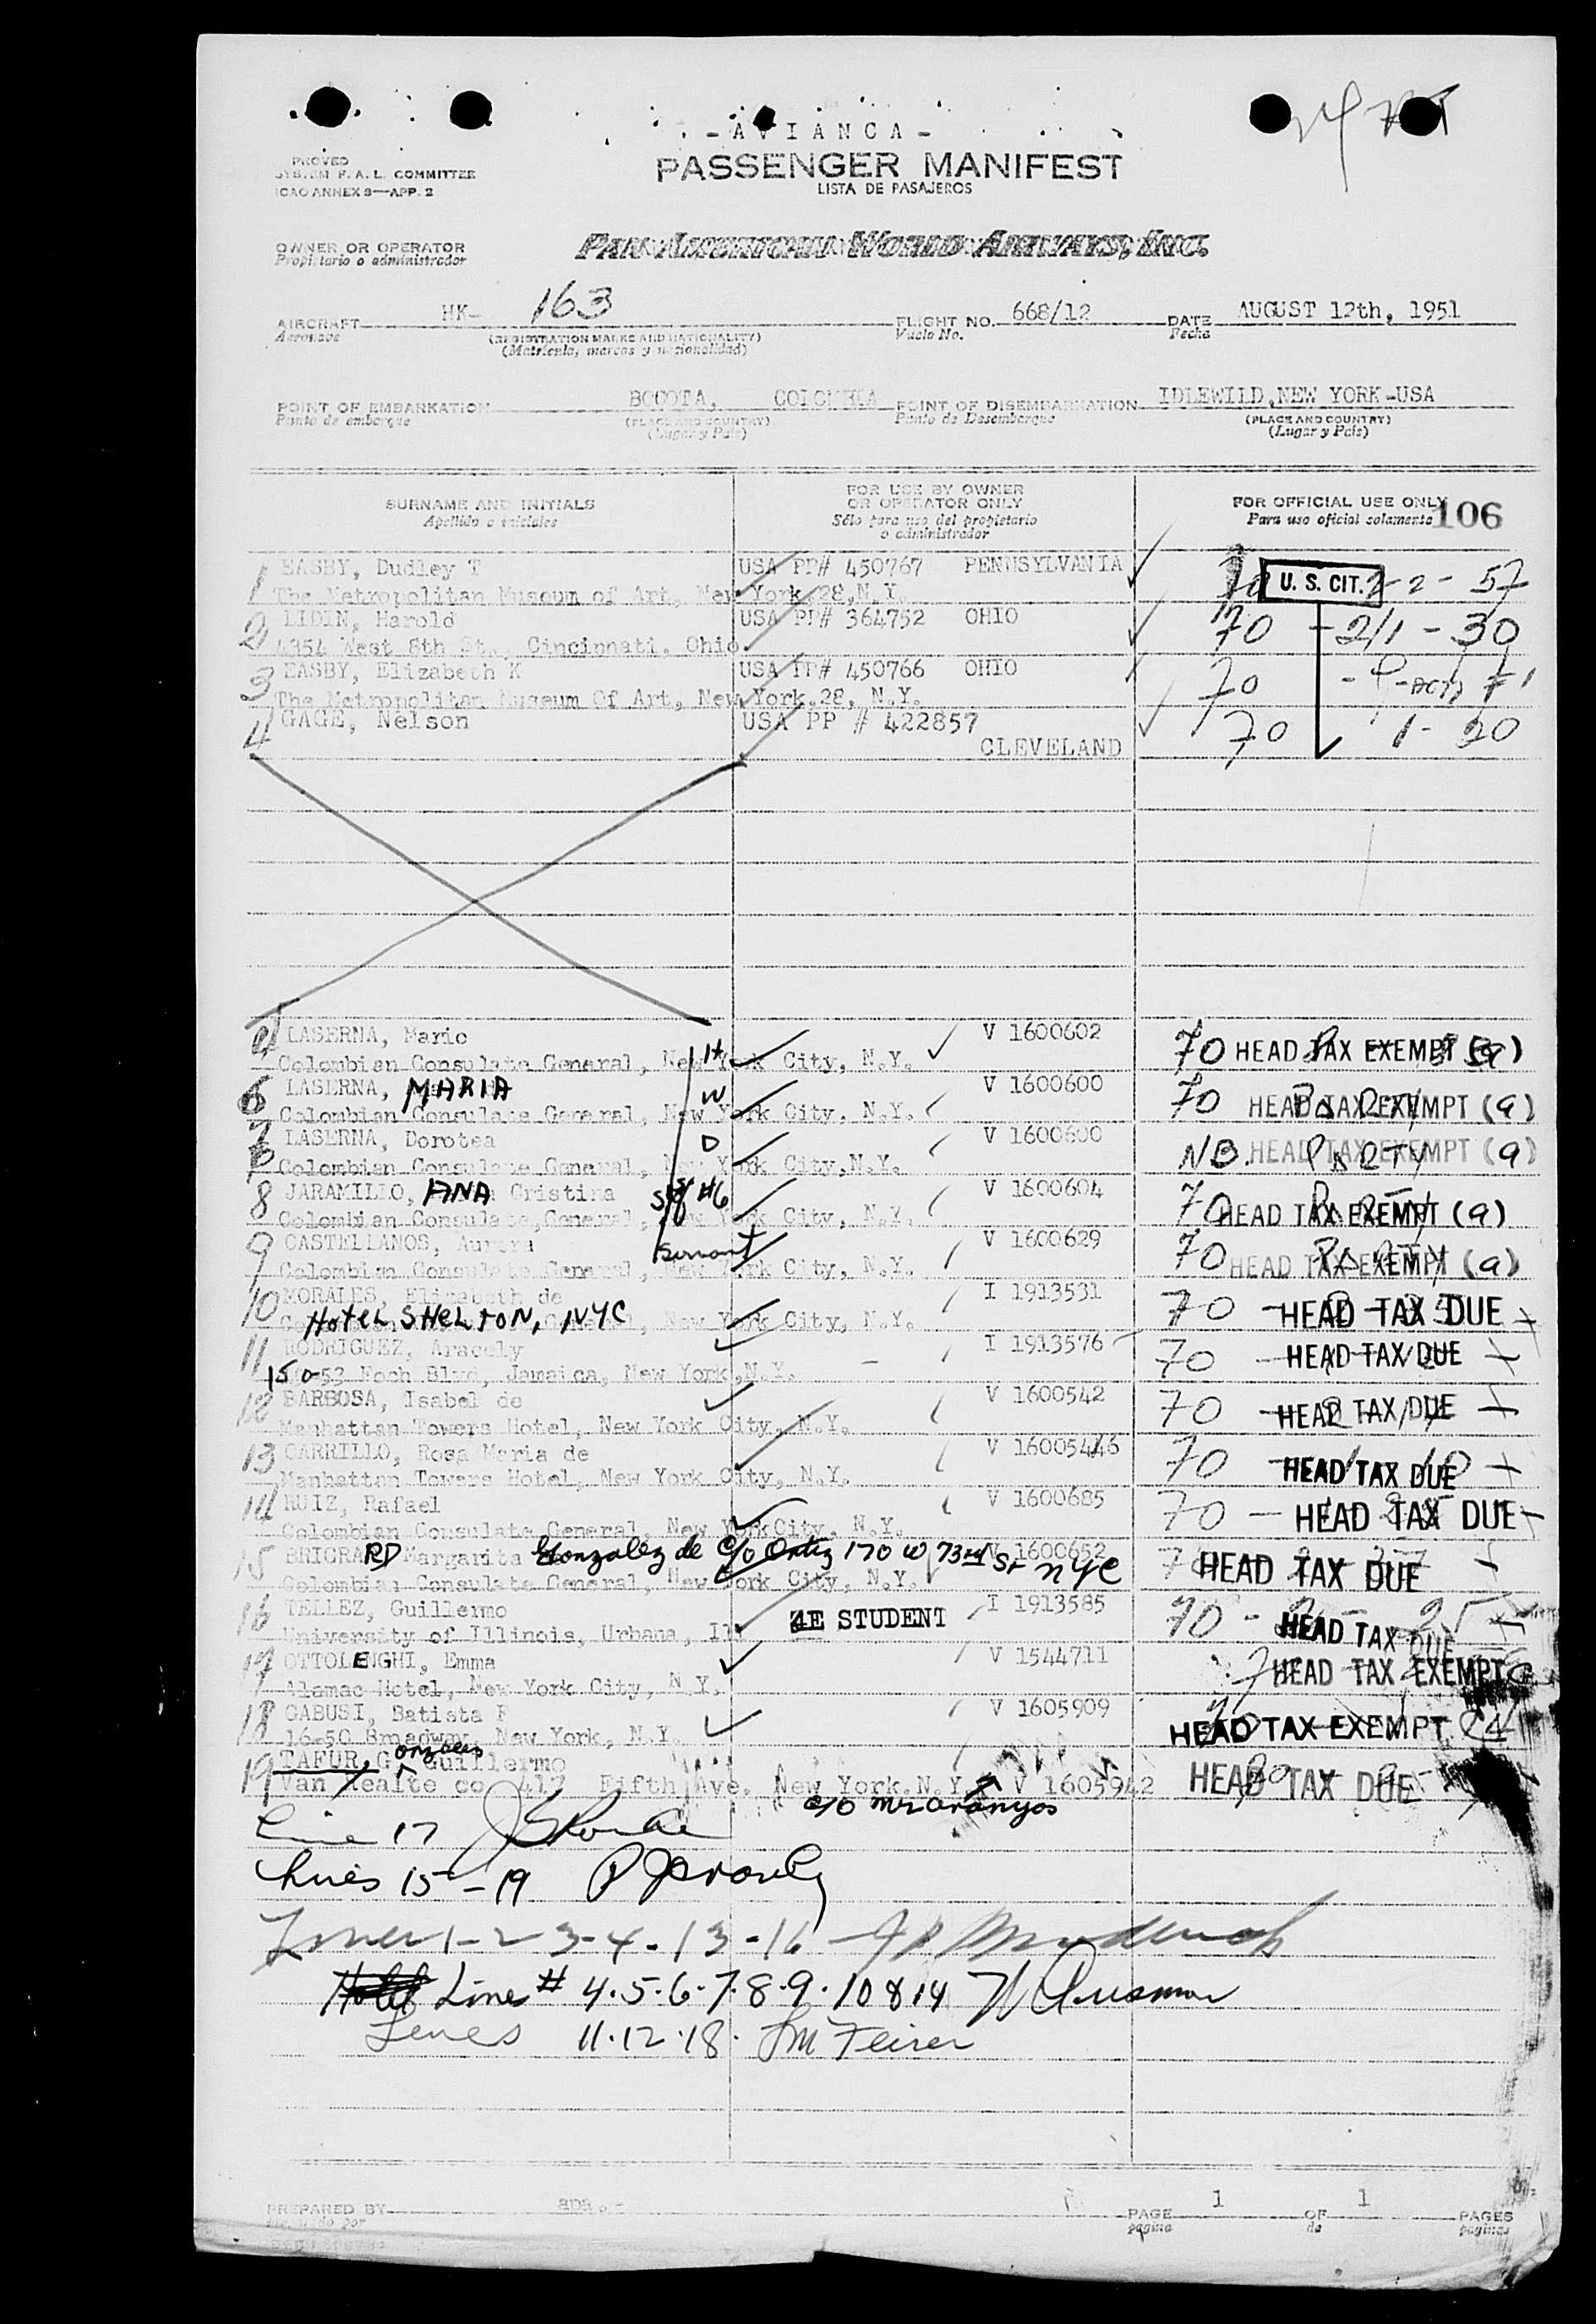 - A V I A N C A -
PROVED
SYSTEM F. A. L. COMMITTEE
ICAO ANNEX 9—APP. 2
PASSENGER MANIFEST
LISTA DE PASAJEROS
OWNER OR OPERATOR
Propietario o administrador
PAN AMERICAN WORLD AIRWAYS, INC.
AIRCRAFT HK- 163 FLIGHT NO. 668/12 DATE AUGUST 12th, 1951
Aeronave (REGISTRATION MARKS AND NATIONALITY) Vuelo No. Fecha
(Matrícula, marcas y nacionalidad)
POINT OF EMBARKATION BOGOTA, COLOMBIA POINT OF DISEMBARKATION IDLEWILD, NEW YORK -USA
Punto de embarque (PLACE AND COUNTRY) Punto de Desembarque (PLACE AND COUNTRY)
(Lugar y País) (Lugar y País)
SURNAME AND INITIALS
Apellido e iniciales
FOR USE BY OWNER
OR OPERATOR ONLY
Sólo para uso del propietario
o administrador
FOR OFFICIAL USE ONLY
Para uso oficial solamente 106
1 EASBY, Dudley T USA PP# 450767 PENNSYLVANIA U. S. CIT.
The Metropolitan Museum of Art, New York,28,N.Y.
2 LIDIN, Harold USA PP# 364752 OHIO 70
4354 West 8th St., Cincinnati. Ohio
3 EASBY, Elizabeth K USA PP# 450766 OHIO 70
The Metropolitan Museum Of Art, New York,28, N.Y.
4 GAGE, Nelson USA PP # 422857 70
CLEVELAND
LASERNA, Mario V 1600602 70 HEAD TAX EXEMPT
Colombian Consulate General, New York City, N.Y. H
6 LASERNA, MARIA V 1600600 70 HEAD TAX EXEMPT (a)
Colombian Consulate General, New York City, N.Y. W
7 LASERNA, Dorotea V 1600600 NB. HEAD TAX EXEMPT (a)
Colombian Consulate General, New York City,N.Y. D
8 JARAMILLO, ANA Cristina V 1600604 70 HEAD TAX EXEMPT (a)
Colombian Consulate,General, New York City, N.Y.
9 CASTELLANOS, Aurora V 1600629 70 HEAD TAX EXEMPT (a)
Colombian Consulate General, New York City, N.Y. Servant
10 MORALES, Elizabeth de I 1913531 70 HEAD TAX DUE
HOTEL SHELTON, NYC General, New York City, N.Y.
11 RODRIGUEZ, Aracely I 1913576 70 HEAD TAX DUE
150-53 Foch Blvd, Jamaica, New York,N.Y.
12 BARBOSA, Isabel de V 1600542 70 HEAD TAX DUE
Manhattan Towers Hotel, New York City, N.Y.
13 CARRILLO, Rosa Maria de V 1600546 70 HEAD TAX DUE
Manhattan Towers Hotel, New York City, N.Y.
14 RUIZ, Rafael V 1600685 70 HEAD TAX DUE
Colombian Consulate General, New York City, N.Y.
15 BRIGARD Margarita Gonzalez de c/o Ortiz 170 W 73rd St NYC V 1600652 HEAD TAX DUE
Colombian Consulate General, New York City, N.Y.
16 TELLEZ, Guillermo 4E STUDENT I 1913585 70 HEAD TAX DUE
University of Illinois, Urbana, Ill
17 OTTOLENGHI, Emma V 1544711 HEAD TAX EXEMPT
Alamac Hotel, New York City, N Y.
18 GABUSI, Batista F V 1605909 HEAD TAX EXEMPT
16-50 Broadway, New York, N.Y.
19 TAFUR, Gonzales Guillermo
Van Realte co 417 Fifth Ave. New York,N.Y. V 1605942 HEAD TAX DUE
c/o Mr Aranyos
Line 17
Lines 15-19
Lines 1-2 3-4-13-16
Lines # 4.5.6.7.8.9.10 & 14
Lines 11.12.18.
PREPARED BY ana.- PAGE 1 OF 1 PAGES
Preparado por página de páginas